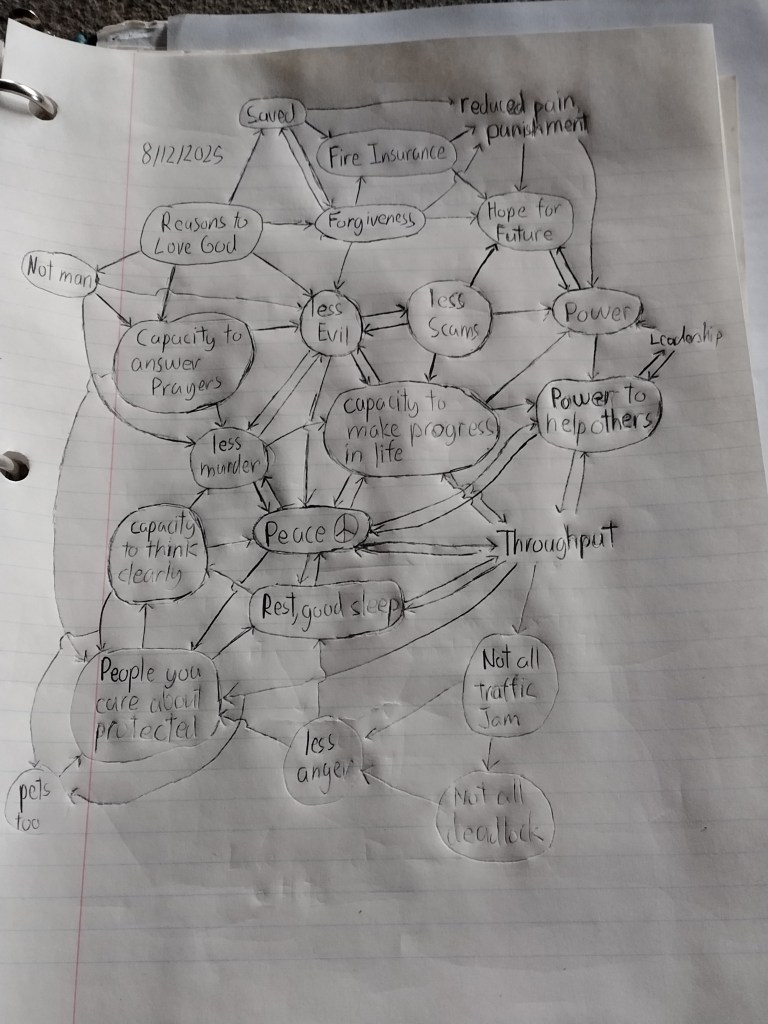 Saved
reduced pain,
punishment
8/12/2025
Fire Insurance
Reasons to
Love God
Forgiveness
Hope for
Future
Not man
less
Evil
less
Scams
Power
Leadership
Capacity to
answer
Prayers
capacity to
make progress
in life
Power to
help others
less
murder
capacity
to think
clearly
Peace ☮
Throughput
Rest, good sleep
People you
care about
protected
Not all
traffic
Jam
less
anger
pets
too
Not all
deadlock